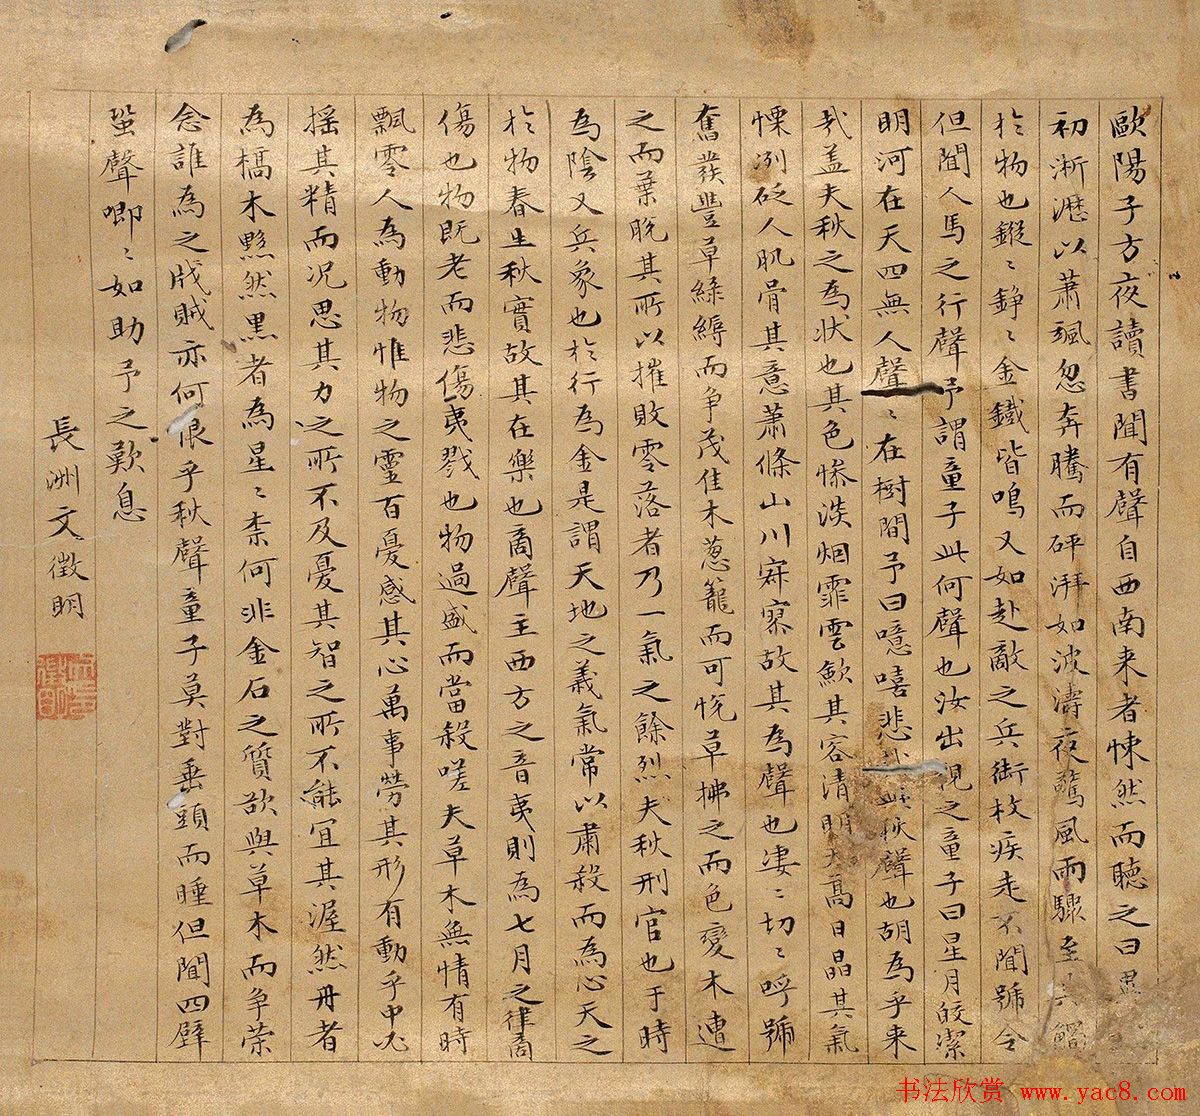 歐陽子方夜讀書聞有聲自西南来者悚然而聴之曰異
初淅瀝以蕭颯忽奔騰而砰湃如波濤夜驚風雨驟至其觸
於物也鏦〻錚〻金鐵皆鳴又如赴敵之兵銜枚疾走不聞號令
但聞人馬之行聲予謂童子此何聲也汝出視之童子曰星月皎潔
明河在天四無人聲〻在樹間予曰噫嘻悲此秋聲也胡為乎来
哉盖夫秋之為状也其色惨淡烟霏雲歛其容清明天髙日晶其氣
慄洌砭人肌骨其意蕭條山川寂寥故其為聲也凄〻切〻呼號
奮發豐草綠縟而争茂佳木葱籠而可悦草拂之而色變木遭
之而葉脱其所以摧敗零落者乃一氣之餘烈夫秋刑官也于時
為陰又兵象也於行為金是謂天地之義氣常以肅殺而為心天之
於物春生秋實故其在樂也商聲主西方之音夷則為七月之律商
傷也物既老而悲傷夷戮也物過盛而當殺嗟夫草木無情有時
飄零人為動物惟物之靈百憂感其心萬事勞其形有動乎中必
摇其精而况思其力之所不及憂其智之所不能宜其渥然丹者
為槁木黟然黒者為星〻柰何非金石之質欲與草木而争荣
念誰為之戕賊亦何恨乎秋聲童子莫對垂頭而睡但聞四壁
蛩聲唧〻如助予之歎息
長洲文徵明
書法欣赏 www.yac8.com